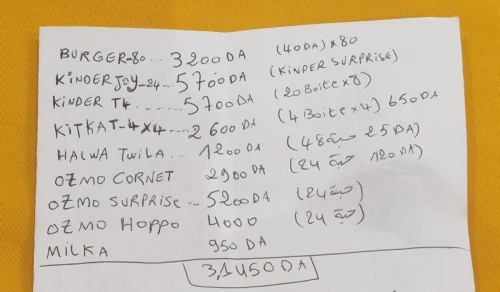 BURGER-80... 3200DA (40DA) x 80
KiNDER JOY-24... 5700DA (KINDER SURPRISE)
KiNDER T4....... 5700DA (20 Boite x 8)
KiTKAT-4x4..... 2600DA (4 Boite x 4) 650DA
HALWA TwiLA.. 1200DA (48 حبة 25 DA)
OZMO CORNET 2900 DA (24 حبة 120 DA)
OZMO SURPRISE... 5200DA (24 حبة)
OZMO HOPPO 4000 (24 حبة)
MiLKA 950 DA
31450DA